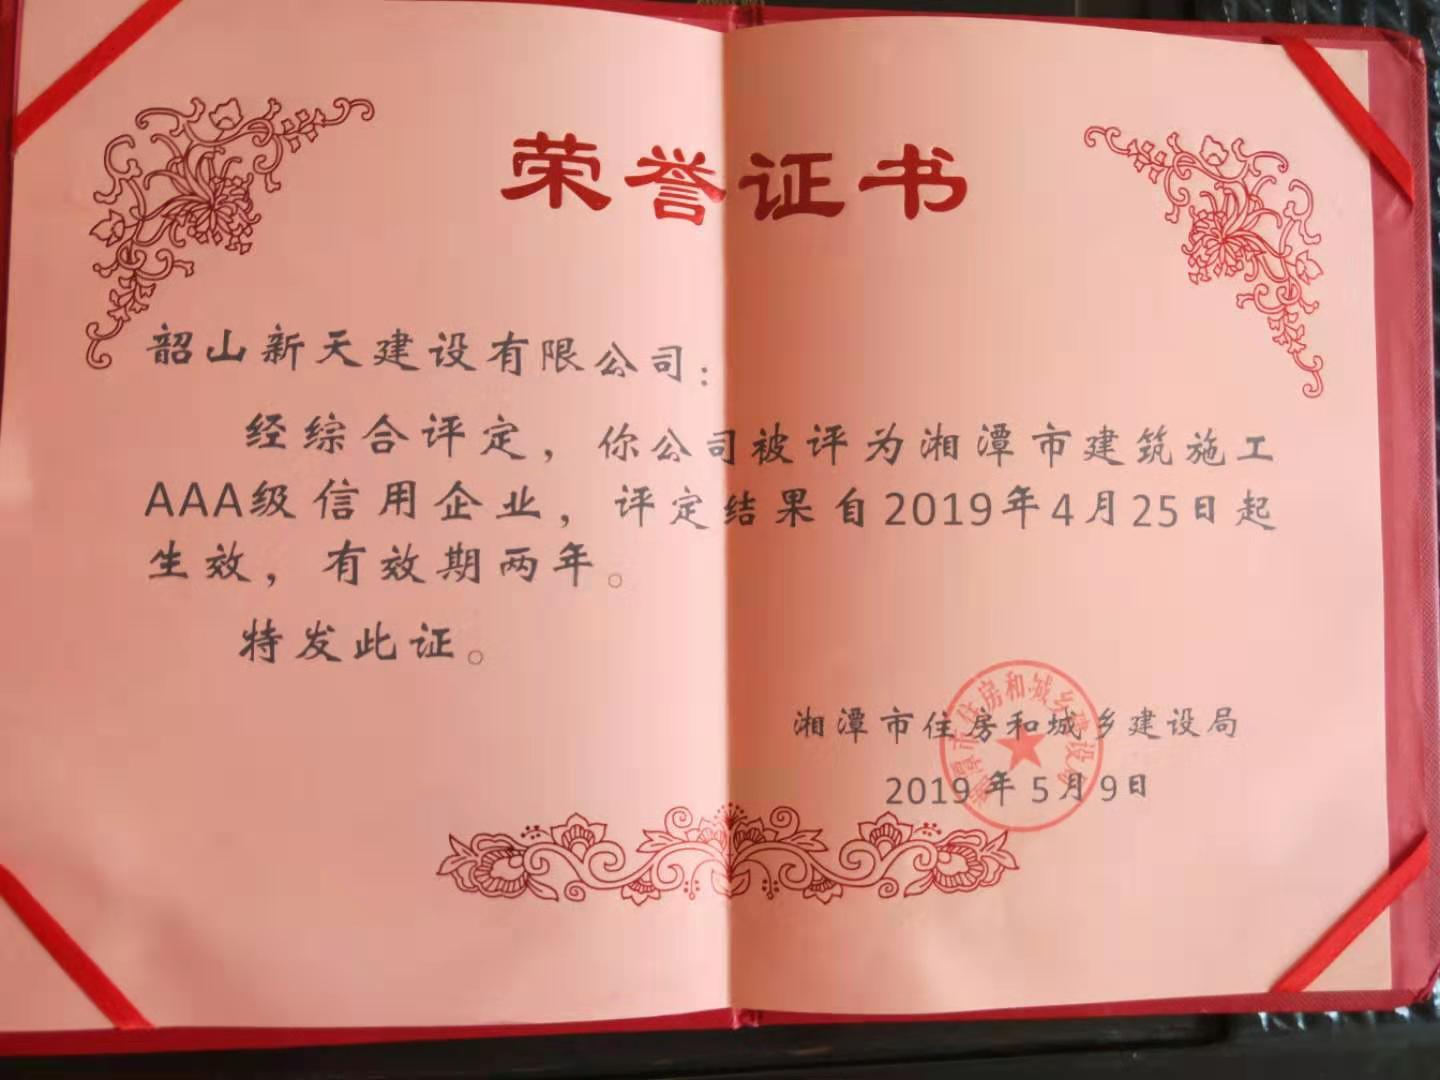 荣誉证书
韶山新天建设有限公司：
经综合评定，你公司被评为湘潭市建筑施工
AAA级信用企业，评定结果自2019年4月25日起
生效，有效期两年。
特发此证。
湘潭市住房和城乡建设局
2019年5月9日
湘潭市住房和城乡建设局